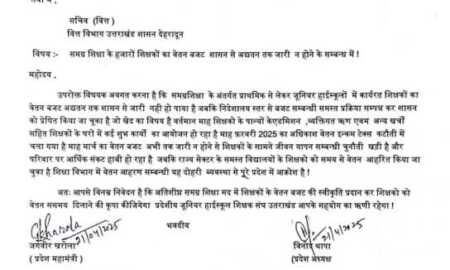 सचिव (वित्त)
वित्त विभाग उत्तराखंड शासन देहरादून
विषय:- समग्र शिक्षा के हजारों शिक्षकों का वेतन बजट शासन से अद्यतन तक जारी न होने के सम्बन्ध में
महोदय,
उपरोक्त विषयक अवगत करना है कि समग्रशिक्षा के अंतर्गत प्राथमिक से लेकर जूनियर हाईस्कूलों में कार्यरत शिक्षकों का
वेतन बजट अद्यतन तक शासन से जारी नहीं हो पाया है जबकि निदेशालय स्तर से बजट सम्बन्धी समस्त प्रक्रिया सम्पन्न कर शासन
को प्रेषित किया जा चुका है जो खेद का विषय है वर्तमान माह शिक्षकों के पाल्यों के एडमिशन ,व्यक्तिगत ऋण एवम अन्य खर्चों
सहित शिक्षकों के घरों में कई शुभ कार्यो का आयोजन हो रहा है माह फरवरी 2025 का अधिकांश वेतन इन्कम टेक्स कटौती में
चला गया है माह मार्च का वेतन बजट अभी तक जारी न होने से शिक्षकों के सामने जीवन यापन सम्बन्धी चुनौती खड़ी है और
परिवार पर आर्थिक संकट हावी हो रहा है जबकि राज्य सेक्टर के समस्त विद्यालयों के शिक्षकों को समय से वेतन आहरित किया जा
चुका है शिक्षा विभाग में वेतन आहरण सम्बन्धी यह दोहरी ब्यवस्था से पूरे प्रदेश में आक्रोश है।
अतः आपसे विनम्र निवेदन है कि अतिशीघ्र समग्र शिक्षा मद में शिक्षकों के वेतन बजट की स्वीकृति प्रदान कर शिक्षको को
वेतन ससमय दिलाने की कृपा कीजियेगा प्रदेशीय जूनियर हाईस्कूल शिक्षक संघ उत्तराखंड आपके सहयोग का ऋणी रहेगा !
भवदीय
21/04/2025 21/4/2025
जगवीर खरोला विनोद थापा
( प्रदेश महामंत्री ) (प्रदेश अध्यक्ष